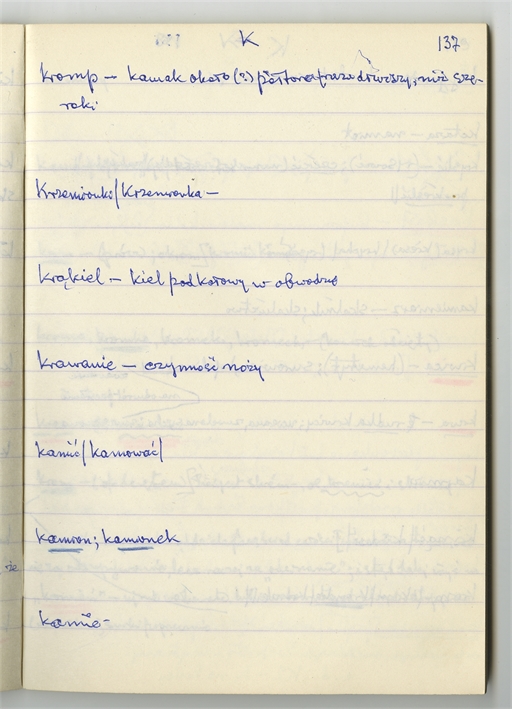 K 137
Kromp – kamak około (?) półtora raza dłuższy, niż sze-
roki
Krzemionki/Krzemionka –
Krąkiel – kiel podkołowy w obwodzie
Krawanie – czynność noży
kamić/kamować/
kamion; kamionek
kamie-